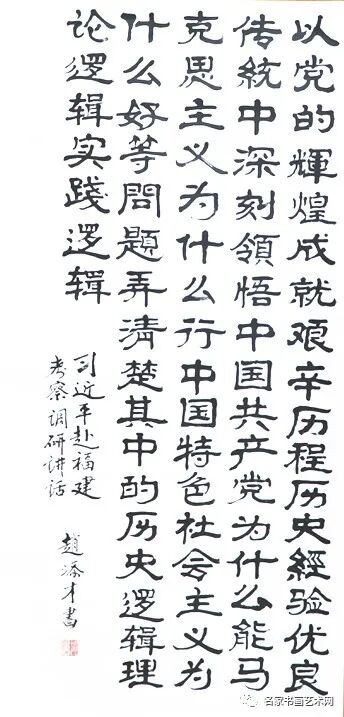 以党的輝煌成就艰辛历程历史經验优良
传統中深刻領悟中国共产党为什么能马
克思主义为什么行中国特色社会主义为
什么好等問題弄清楚其中的历史逻辑理
论逻辑实践逻辑
习近平赴福建
考察调研讲话
趙添才書
名家书画艺术网